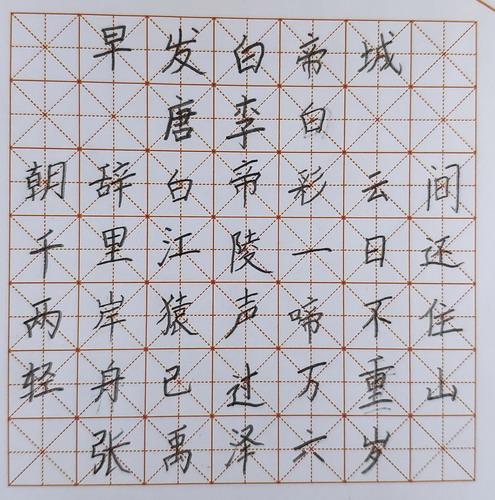 早发白帝城
唐李白
朝辞白帝彩云间
千里江陵一日还
两岸猿声啼不住
轻舟已过万重山
张禹泽六岁